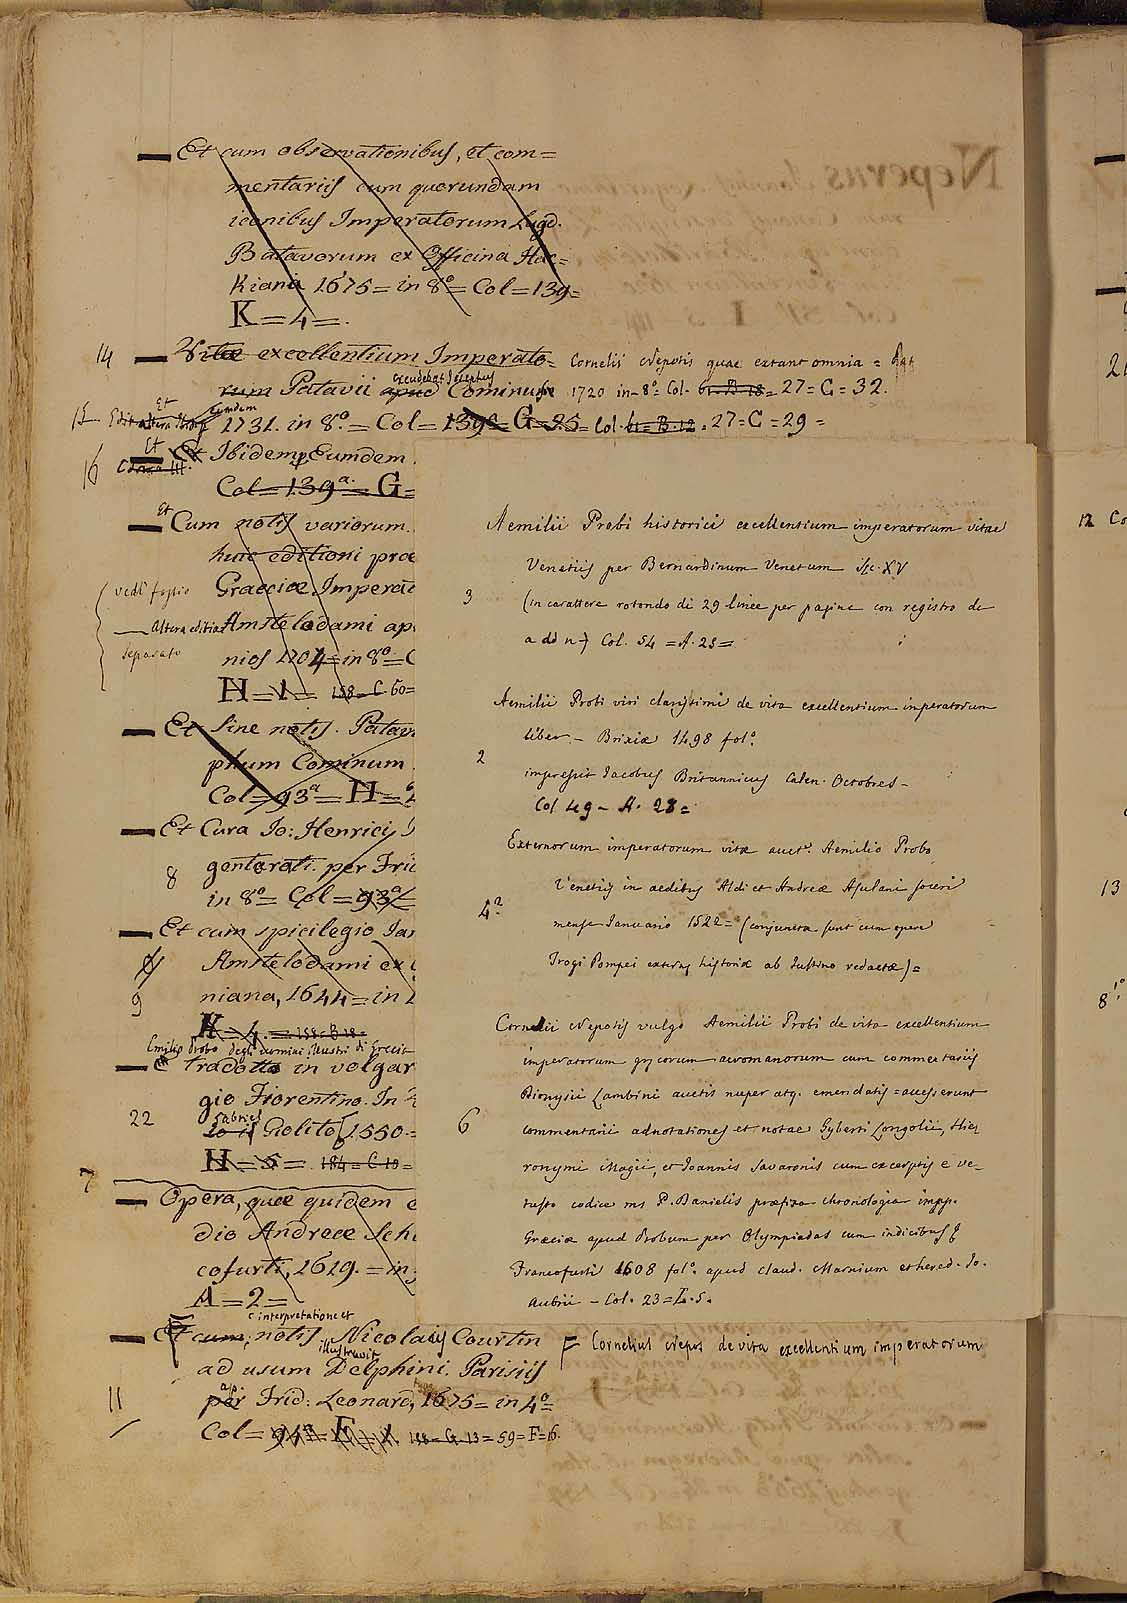 Et cum observationibus, et com=
mentariis cum quorundam
iconibus Imperatorum Lugd.
Batavorum ex Officina Hac=
Kiana 1675= in 8º= Col= 139=
K=4=.
14 Vitæ excellentium Imperato= Cornelii Nepotis quae extant omnia = Pat
excudebat Josephus
rum Patavii apud Cominus 1720 in-8º Col. 61=B-18= 27=C=32.
Et eumdem
15 altera 1731. in 8º= Col= 139= G=25= Col. 61=B.12. 27=C=29=
Et
16 Et Ibidem Eumdem
Col=139ª. G=
Et Cum notis variorum.
huic editioni præ
vedi foglio Graeciæ Imperat
altera editio Amstelodami ap
separato nios 1704=in 8º=C
H=1= 158-C-60=
Et Sine notis. Patav
phum Cominum
Col=93ª=H=2
Et Cura Io: Henrici
8 gentorati. per Frid
in 8º= Col=93ª
Et cum spicilegio Ia
Amstelodami ex
9 niana, 1644=in
K=4.=158-B-18=
Emilio Probo degli uomini illustri di Grecia
Tradotto in volgar
gio Fiorentino. In
Gabriel
22 Giolito 1550=
H=5= 184=C-10=
7
Opera, quæ quidem e
dio Andreæ Sch
cofurti, 1619.=in
A=2=
interpretatione et
Et cum notis Nicolaus Courtin
illustravit
ad usum Delphini. Parisiis
ap.
11 per Frid: Leonard, 1675= in 4º=
Col= 94ª= F=1 158-G-13=59=F=16.
Aemilii Probi historici excellentium imperatorum vitae
Venetiis per Bernardinum Venetum Sec. XV
3 (in carattere rotondo di 29 linee per pagina con registro da
a ad n) Col. 54=A.25=
Aemilii Probi viri clarissimi de vita excellentium imperatorum
liber. - Brixiæ 1498 folº.
2 impressit Jacobus Britannicus Calen. Octobres-
Col 49-A. 28=
Externorum imperatorum vitæ auctº. Aemilio Probo
Venetiis in aedibus Aldi et Andreæ Asulani soceri
4ª mense Januario 1522=(conjuncta sunt cum opere
Trogi Pompei externæ historiæ ab Justino redactæ)=
Cornelii Nepotis vulgo Aemilii Probi de vita excellentium
imperatorum græcorum ac romanorum cum commentariis
Dionysii Lambini auctis nuper atq. emendatis=accesserunt
6 commentarii adnotationes et notae Gyberti Longolii, Hier
ronymi Magii, et Joannis Savaronis cum excerptis e ve-
tusto codice ms P. Danielis præfixa chronologia impp.
Græciæ apud Probum per Olympiadas cum indicibus
Francofurti 1608 folº. apud Claud. Marnium et hered. Jo.
Aubrii - Col. 23=E.5.
Cornelius Nepos de vita excellentium imperatorum
12 Co
13
8